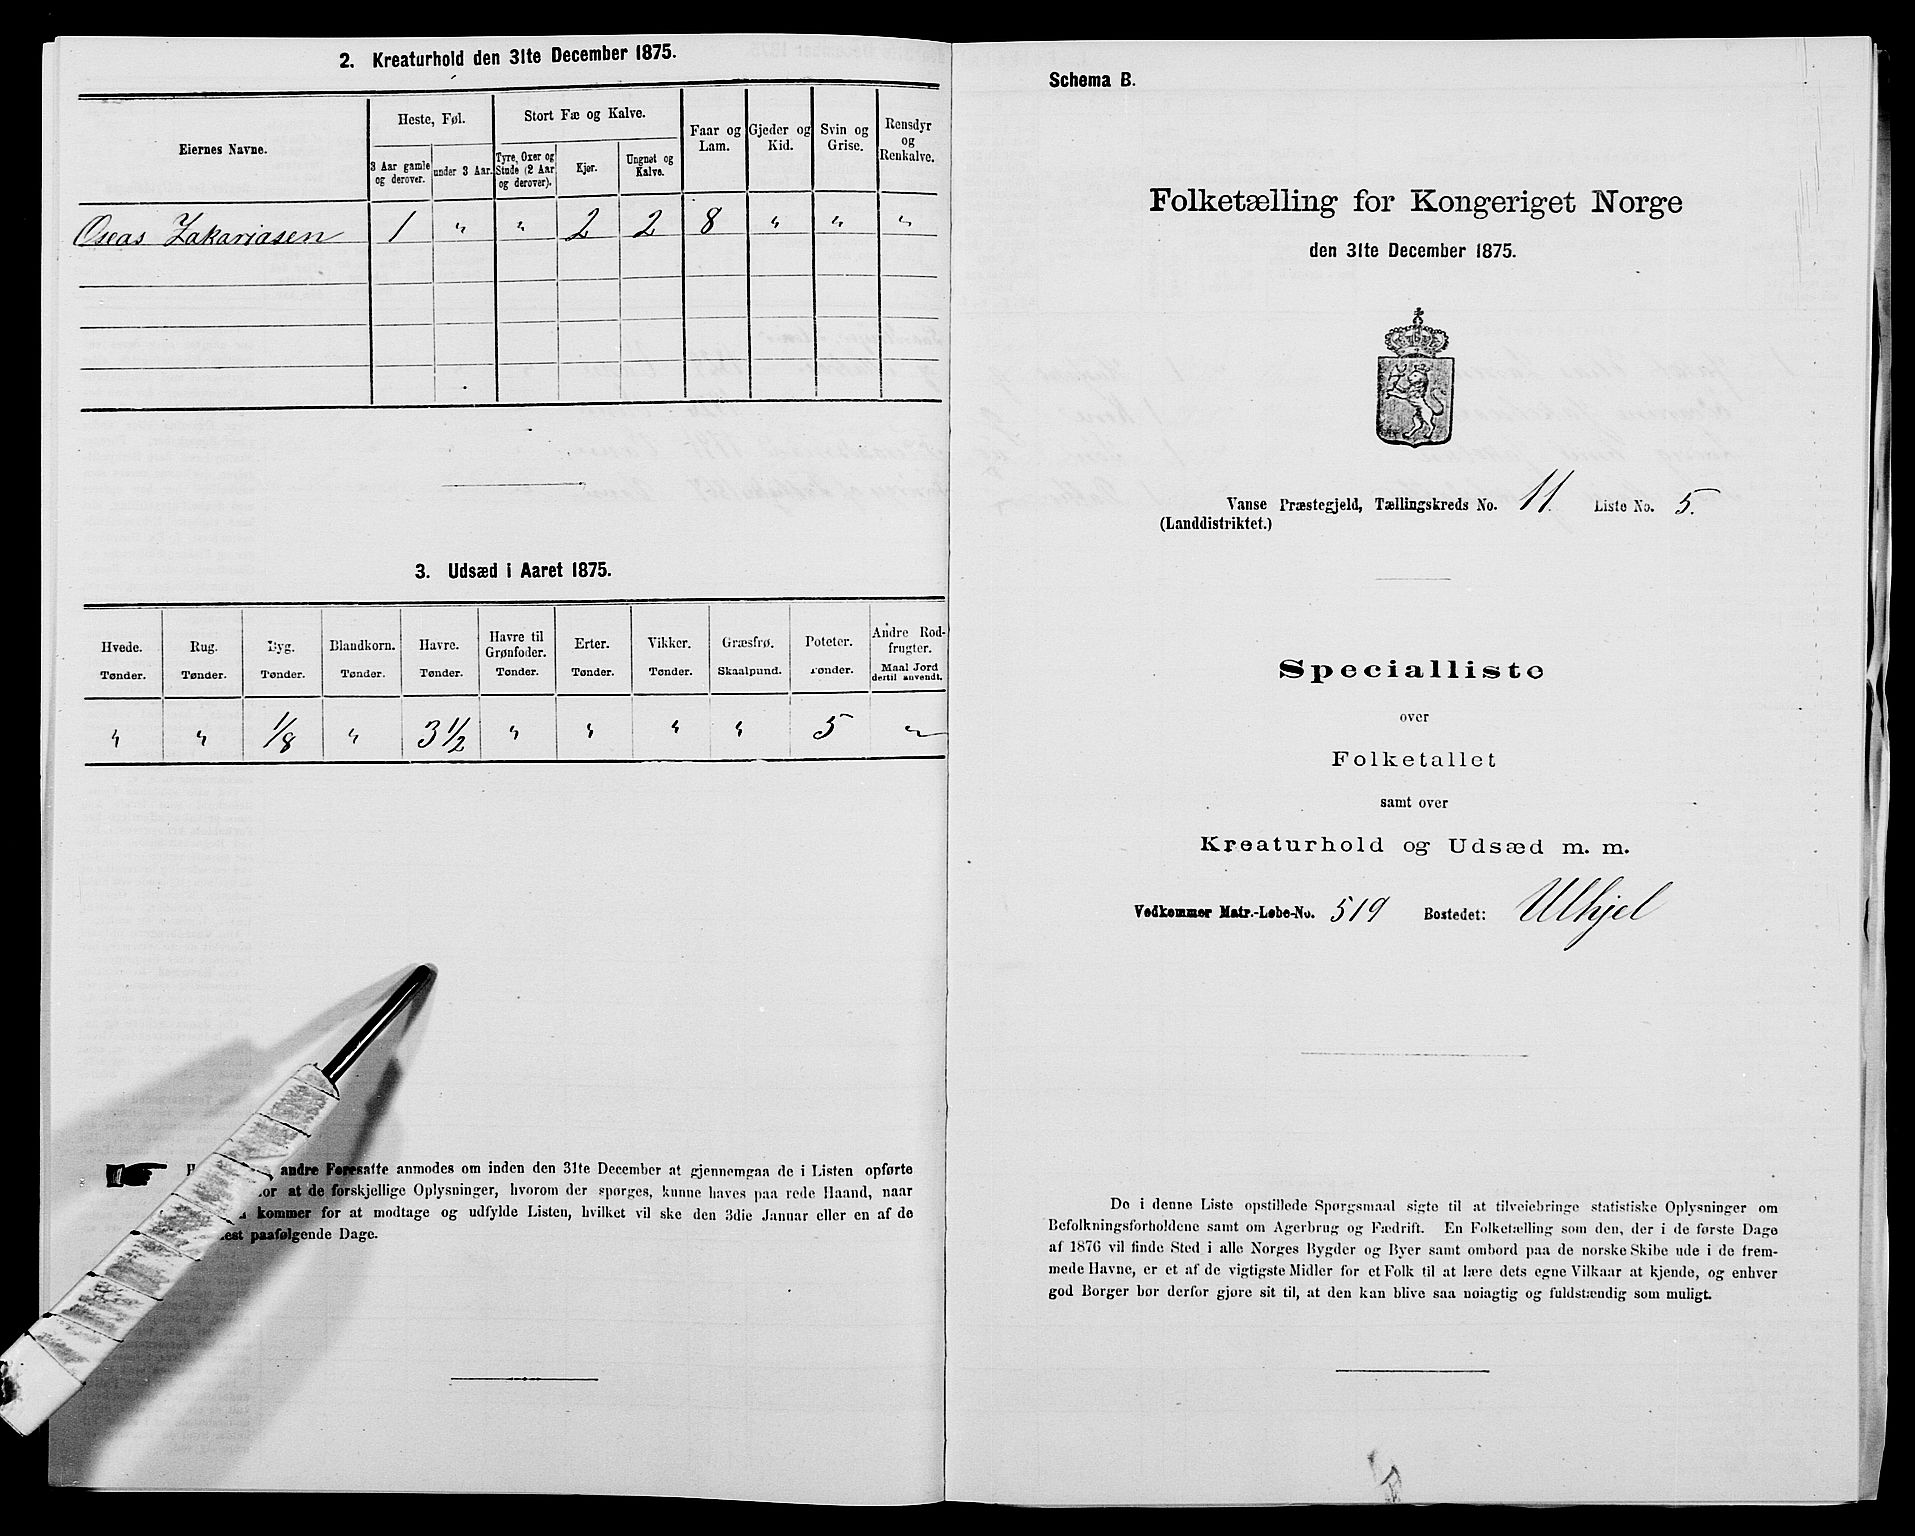 2. Kreaturhold den 31te December 1875.
Eiernes Navne.
Heste, Føl.
Stort Fæ og Kalve.
Faar og Lam.
Gjeder og Kid.
Svin og Grise.
Rensdyr og Renkalve.
3 Aar gamle og derover.
under 3 Aar.
Tyre, Oxer og Stude (2 Aar og derover).
Kjør.
Ungnøt og Kalve.
Oseas Zakariasen 1 " " 2 2 8 " " "
3. Udsæd i Aaret 1875.
Hvede. Rug. Byg. Blandkorn. Havre. Havre til Grønfoder. Erter. Vikker. Græsfrø. Poteter. Andre Rodfrugter.
Tønder. Tønder. Tønder. Tønder. Tønder. Tønder. Tønder. Tønder. Skaalpund. Tønder. Maal Jord dertil anvendt.
" " 1/8 " 3 1/2 " " " " 5 "
andre Foresatte anmodes om inden den 31te December at gjennemgaa de i Listen opførte
at de forskjellige Oplysninger, hvorom der spørges, kunne haves paa rede Haand, naar
kommer for at modtage og udfylde Listen, hvilket vil ske den 3die Januar eller en af de
paafølgende Dage.
Schema B.
Folketælling for Kongeriget Norge
den 31te December 1875.
Vanse Præstegjeld, Tællingskreds No. 11. Liste No. 5.
(Landdistriktet.)
Specialliste
over
Folketallet
samt over
Kreaturhold og Udsæd m. m.
Vedkommer Matr.-Løbe-No. 519 Bostedet: Ulhjel
De i denne Liste opstillede Spørgsmaal sigte til at tilveiebringe statistiske Oplysninger om
Befolkningsforholdene samt om Agerbrug og Fædrift. En Folketælling som den, der i de første Dage
af 1876 vil finde Sted i alle Norges Bygder og Byer samt ombord paa de norske Skibe ude i de frem-
mede Havne, er et af de vigtigste Midler for et Folk til at lære dets egne Vilkaar at kjende, og enhver
god Borger bør derfor gjøre sit til, at den kan blive saa nøiagtig og fuldstændig som muligt.